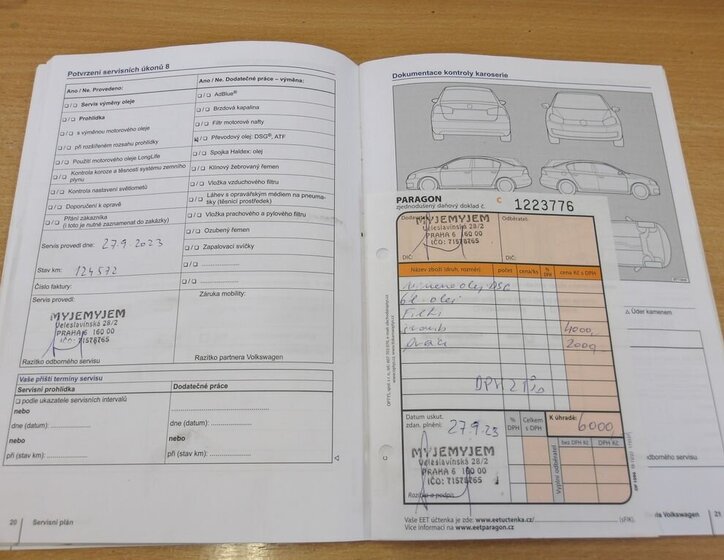 Potvrzení servisních úkonů 8
Ano / Ne. Provedeno:
Servis výměny oleje
Prohlídka
s výměnou motorového oleje
při rozšířeném rozsahu prohlídky
Použití motorového oleje LongLife
Kontrola koroze a těsnosti systému zemního plynu
Kontrola nastavení světlometů
Doporučení k opravě
Přání zákazníka
(i toto je nutné zaznamenat do zakázky)
Servis provedl dne: 27.9 2023
Stav km: 124572
Číslo faktury:
Servis provedl:
MYJEMYJEM
Veleslavínská 28/2
PRAHA 6 160 00
IČO: 71578765
Razítko odborného servisu
Ano / Ne. Dodatečné práce – výměna:
AdBlue®
Brzdová kapalina
Filtr motorové nafty
Převodový olej: DSG®, ATF
Spojka Haldex: olej
Klínový žebrovaný řemen
Vložka vzduchového filtru
Láhev s opravářským médiem na pneuma-
tiky (těsnicí prostředek)
Vložka prachového a pylového filtru
Ozubený řemen
Zapalovací svíčky
Záruka mobility:
Razítko partnera Volkswagen
Vaše příští termíny servisu
Servisní prohlídka
Dodatečné práce
podle ukazatele servisních intervalů
nebo
dne (datum):
nebo
při (stav km):
dne (datum):
nebo
při (stav km):
20 Servisní plán
Dokumentace kontroly karoserie
PARAGON
zjednodušený daňový doklad č.
C 1223776
Odběratel:
MYJEMYJEM
Veleslavínská 28/2
PRAHA 6 160 00
IČO: 71578765
DIČ:
DIČ:
Název zboží (druh, rozměr) počet cena/ks % DPH cena Kč s DPH
6l olej
4000,
práce 2000,
DPH 21%
Datum uskut.
zdan. plnění:
27.9.23
% DPH
Celkem s DPH
K úhradě: 6000
bez DPH Kč
DPH Kč
Vyplní odběratel
MYJEMYJEM
Veleslavínská 28/2
PRAHA 6 160 00
IČO: 71578765
Razítko a podpis
Vaše EET účtenka je zde: www.eetuctenka.cz/ (sFIK).
Více informací na www.eetparagon.cz
△ Úder kamenem
odborného servisu
Volkswagen
21